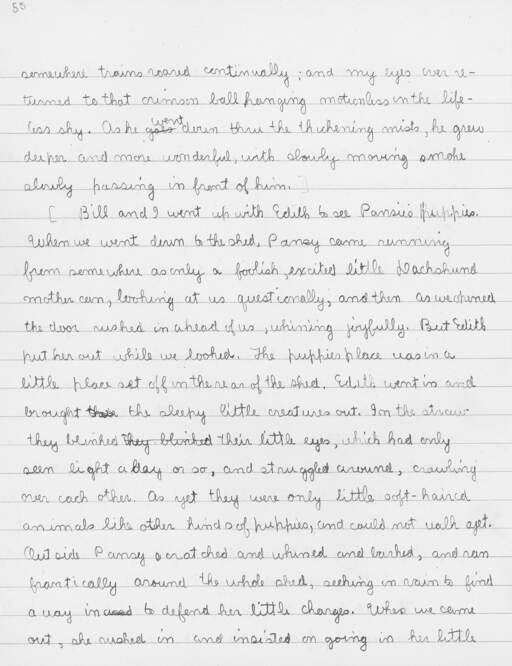 55
somewhere trains roared continually; and my eyes ever re-
turned to that crimson ball hanging motionless in the life-
less sky. As he goes went down thru the thickening mists, he grew
deeper and more wonderful, with slowly moving smoke
slowly passing in front of him. ]
[ Bill and I went up with Edith to see Pansie's puppies.
When we went down to the shed, Pansy came running
from somewhere as only a foolish, excited little Dachshund
mother can, looking at us questionally, and then as we opened
the door rushed in ahead of us, whining joyfully. But Edith
put her out while we looked. The puppies place was in a
little place set off in the rear of the shed. Edith went in and
brought the sleepy little creatures out. In the straw
they blinked they blinked their little eyes, which had only
seen light a day or so, and struggled around, crawling
over each other. As yet they were only little soft-haired
animals like other kinds of puppies, and could not walk yet.
Outside Pansy scratched and whined and barked, and ran
frantically around the whole shed, seeking in vain to find
a way in to defend her little charges. When we came
out, she rushed in and insisted on going in her little